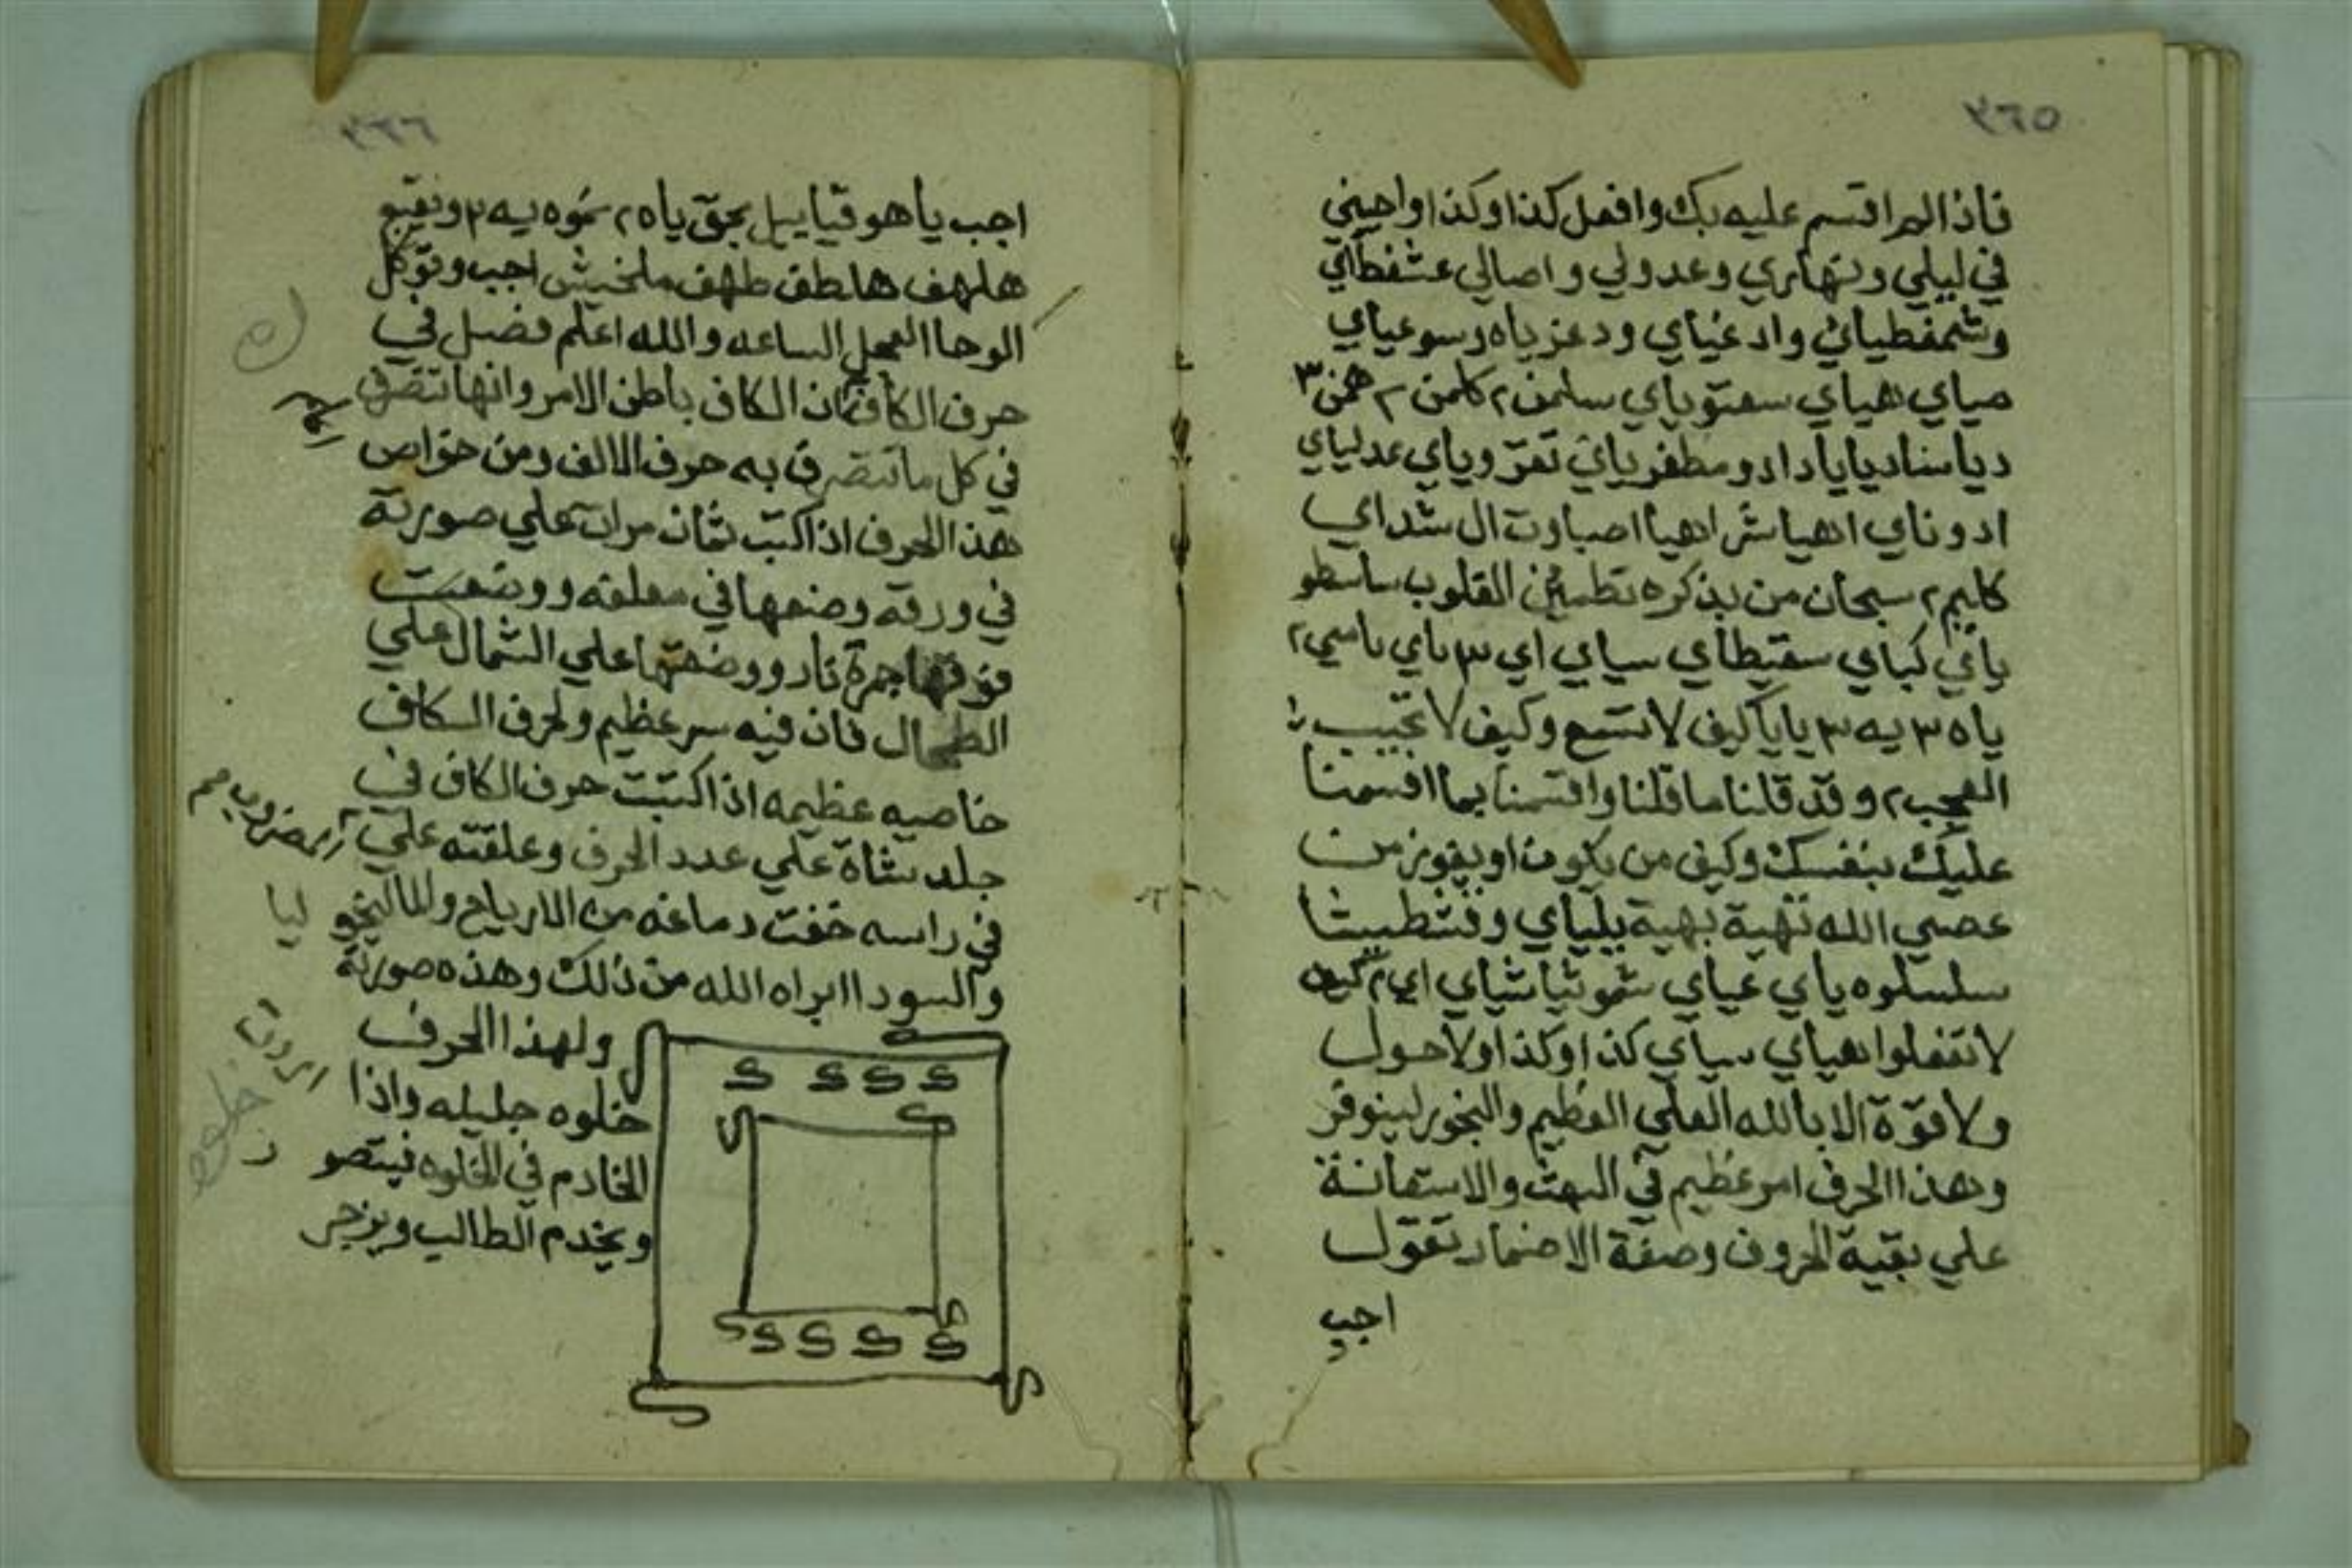 ٣٦٥
فاذا لم اقسم عليه بك وافعل كذا وكذا واجبني
في ليلي ونهاري وغدولي واصالي عشقطاي
وشمقطياي وادغياي ودعزياه وسوعياي
صياي هياي سعتوياي سلمف ٢ كلمن ٢ همن ٣
ادوناي اهيا شراهيا اصباوت ال شداي
كايم ٢ سبحان من بذكره تطمئن القلوب
ياي كباي سقيطاي سياي اي ٣ باي باسي ٢
ياه ٣ يه ٣ يايا كيف لا تسمع وكيف لا تجيب
العجب ٢ وقد قلنا ما قلنا واقسمنا بما اقسمنا
عليك بنفسك وكيف من يكون او يفوز من
عصي الله تهية بهية يلياي وفشطيشا
سلسلوه ياي عياي شموثيا شياي اي ٣
لا تغفلوا هياي سياي كذا وكذا ولا حول
ولا قوة الا بالله العلي العظيم والبخور لينوفر
وهذا الحرف امر عظيم في البهت والاستعانة
علي بقية الحروف وصفة الاضمار تقول
اجب
٣٦٦
اجب يا هوقياييل بحق ياه ٢ نموه يه ٢ وبقبج
هلهف هلطف طهف ملخيش اجب وتوكل
الوحا العجل الساعه والله اعلم فصل في
حرف الكاف فان الكاف باطن الامر وانها تتصرف
في كل ما تتصرف به حرف الالف ومن خواص
هذا الحرف اذا كتب ثمان مرات علي صورته
في ورقه وضعها في معلقه ووضعت
فوقها جمرة نار ووضعتها علي الشمال علي
الطحال فان فيه سر عظيم ولحرف الكاف
خاصيه عظيمه اذا كتبت حرف الكاف في
جلد شاة علي عدد الحرف وعلقته علي
في راسه خفت دماغه من الارياح والماليخو
والسودا ابراه الله من ذلك وهذه صورته
ولهذا الحرف
خلوه جليله واذا
الخادم في الخلوه فيتصو
ويخدم الطالب ويزجر
المضروب
ليا
اردت
ر
خلوه
ك ك ك ك
ك ك ك ك